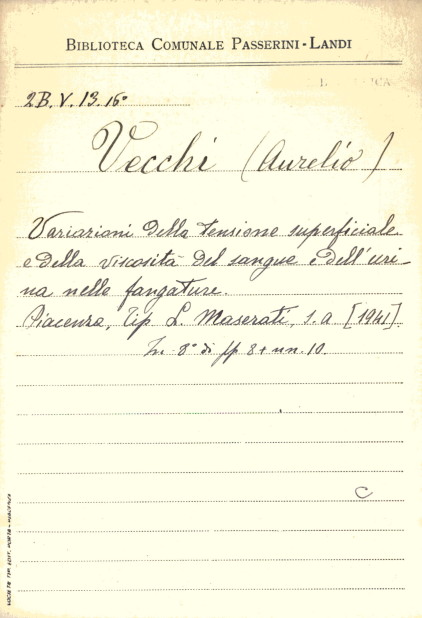 BIBLIOTECA COMUNALE PASSERINI-LANDI
2B.V.13.16°
Vecchi (Aurelio)
Variazioni della tensione superficiale
e della viscosità del sangue e dell'uri-
na nelle fangature.
Piacenza, Tip. L. Maserati, s.a [1941]
In 8° di pp 8 + nn. 10.
C